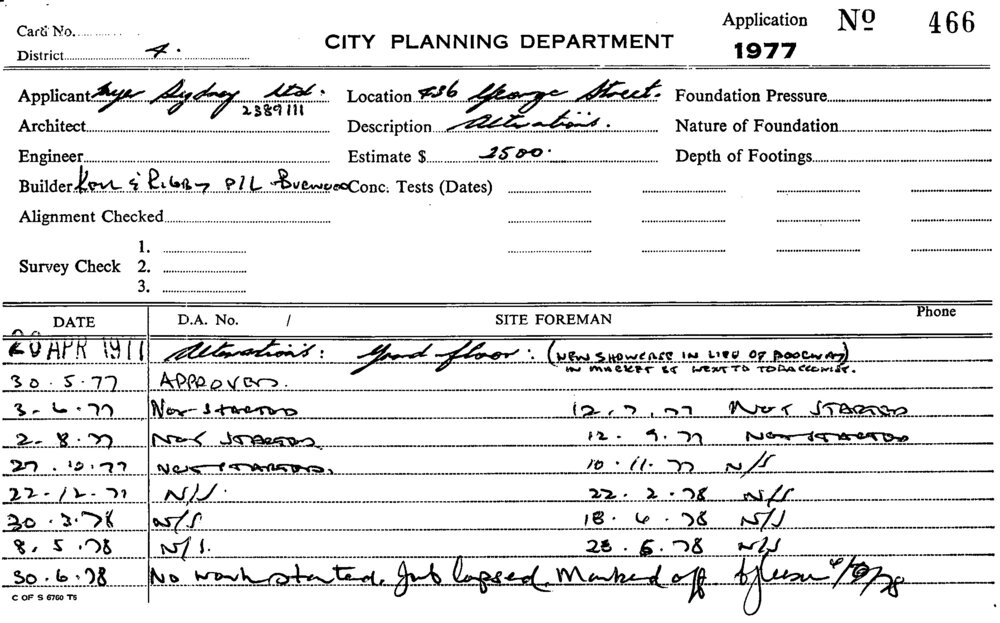 Card No. Application No 466
District 4. CITY PLANNING DEPARTMENT 1977
Applicant Myer Sydney Ltd. Location 436 George Street. Foundation Pressure
2389111
Architect Description Alterations. Nature of Foundation
Engineer Estimate $ 2500. Depth of Footings
Builder P/L Burwood Conc. Tests (Dates)
Alignment Checked
1.
Survey Check 2.
3.
DATE D.A. No. / SITE FOREMAN Phone
20 APR 1977 Alterations: Ground floor: (NEW SHOWCASE IN LIEU OF DOORWAY)
IN MARKET ST NEXT TO TOBACCONIST.
30.5.77 APPROVED.
3-6.77 NOT STARTED 12.7.77 NOT STARTED
2-8.77 NOT STARTED 12.9.77 NOT STARTED
27.10.77 NOT STARTED. 10.11.77 N/S
22-12-77 N/S. 22.2.78 N/S
30.3.78 N/S 18.4.78 N/S
8.5.78 N/S. 23.6.78 N/S
30.6.78 No work started. Job lapsed. Marked off.
C OF S 6760 T5